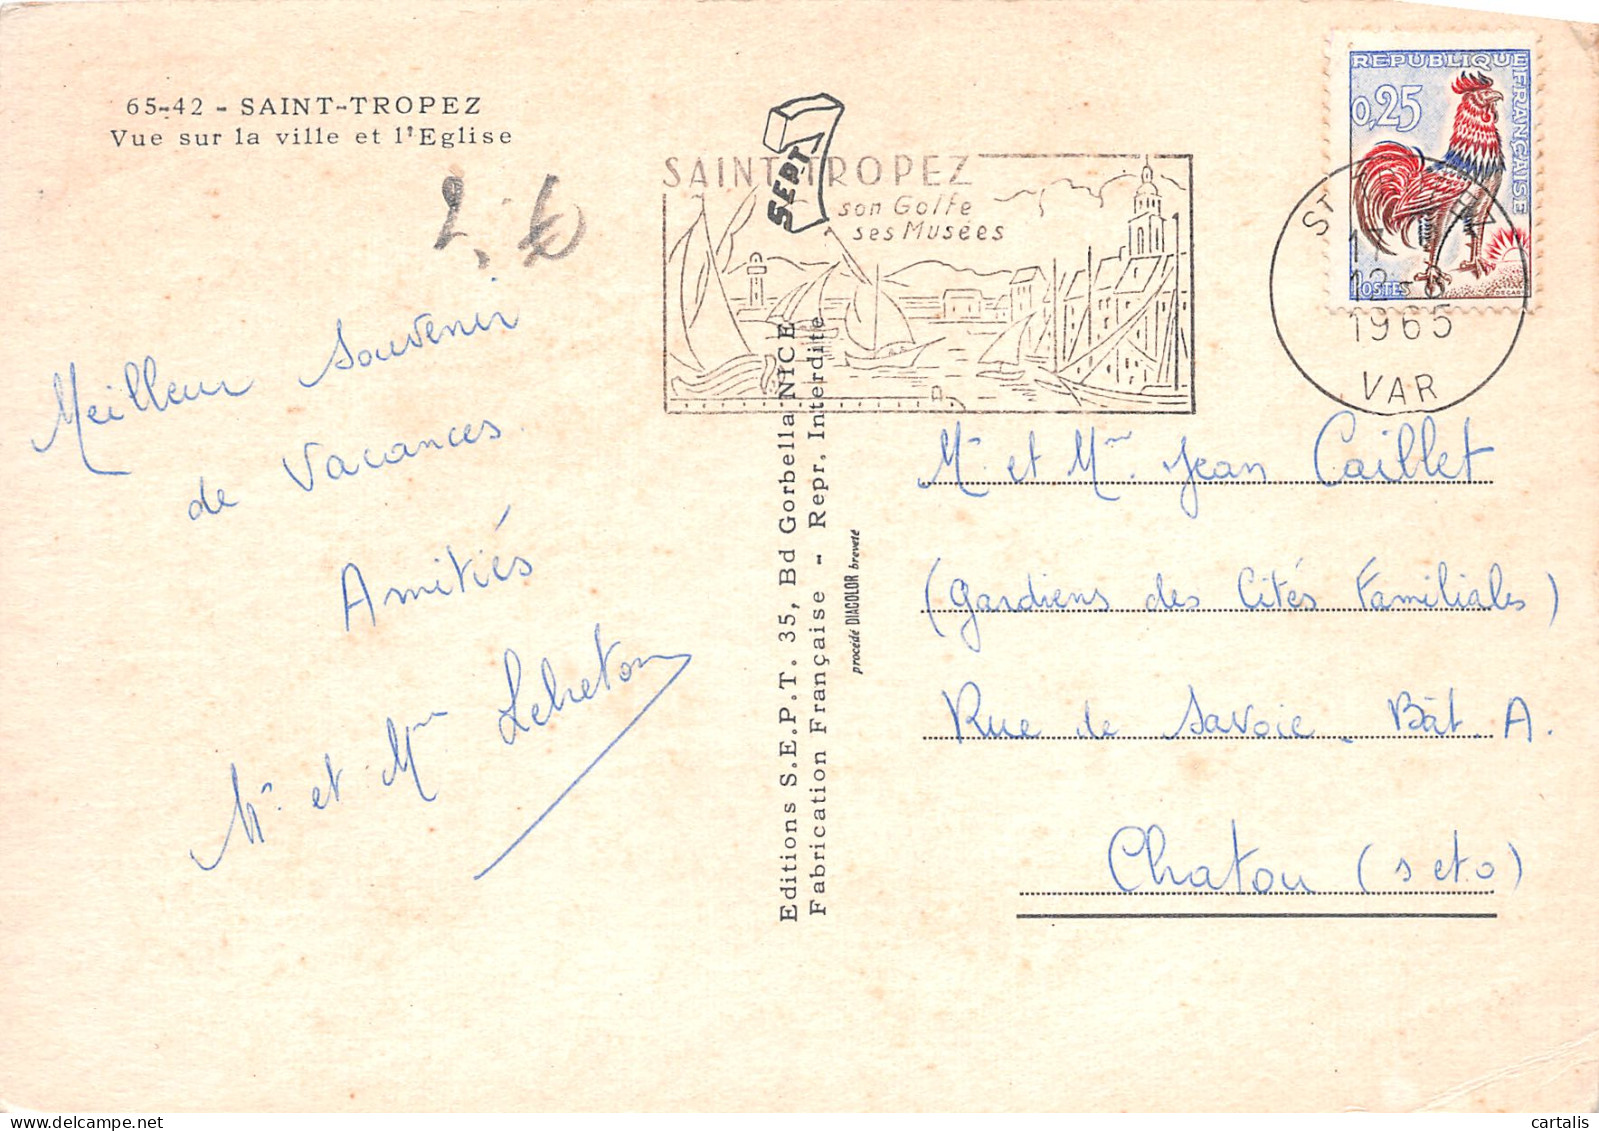 65-42 - SAINT-TROPEZ
Vue sur la ville et l'Eglise
2. €
Meilleur Souvenir
de Vacances
Amitiés
Mr et Mme Lebreton
SEPT
Editions S.E.P.T. 35, Bd Gorbella NICE
Fabrication Française - Repr. Interdite
procédé DIACOLOR breveté
SAINT-TROPEZ
son Golfe
ses Musées
REPUBLIQUE FRANÇAISE
0,25
POSTES
DECARIS
ST
17
12-8
1965
VAR
Mr et Mme Jean Caillet
(gardiens des Cités Familiales)
Rue de Savoie - Bât. A.
Chatou (s et o)
cartalis